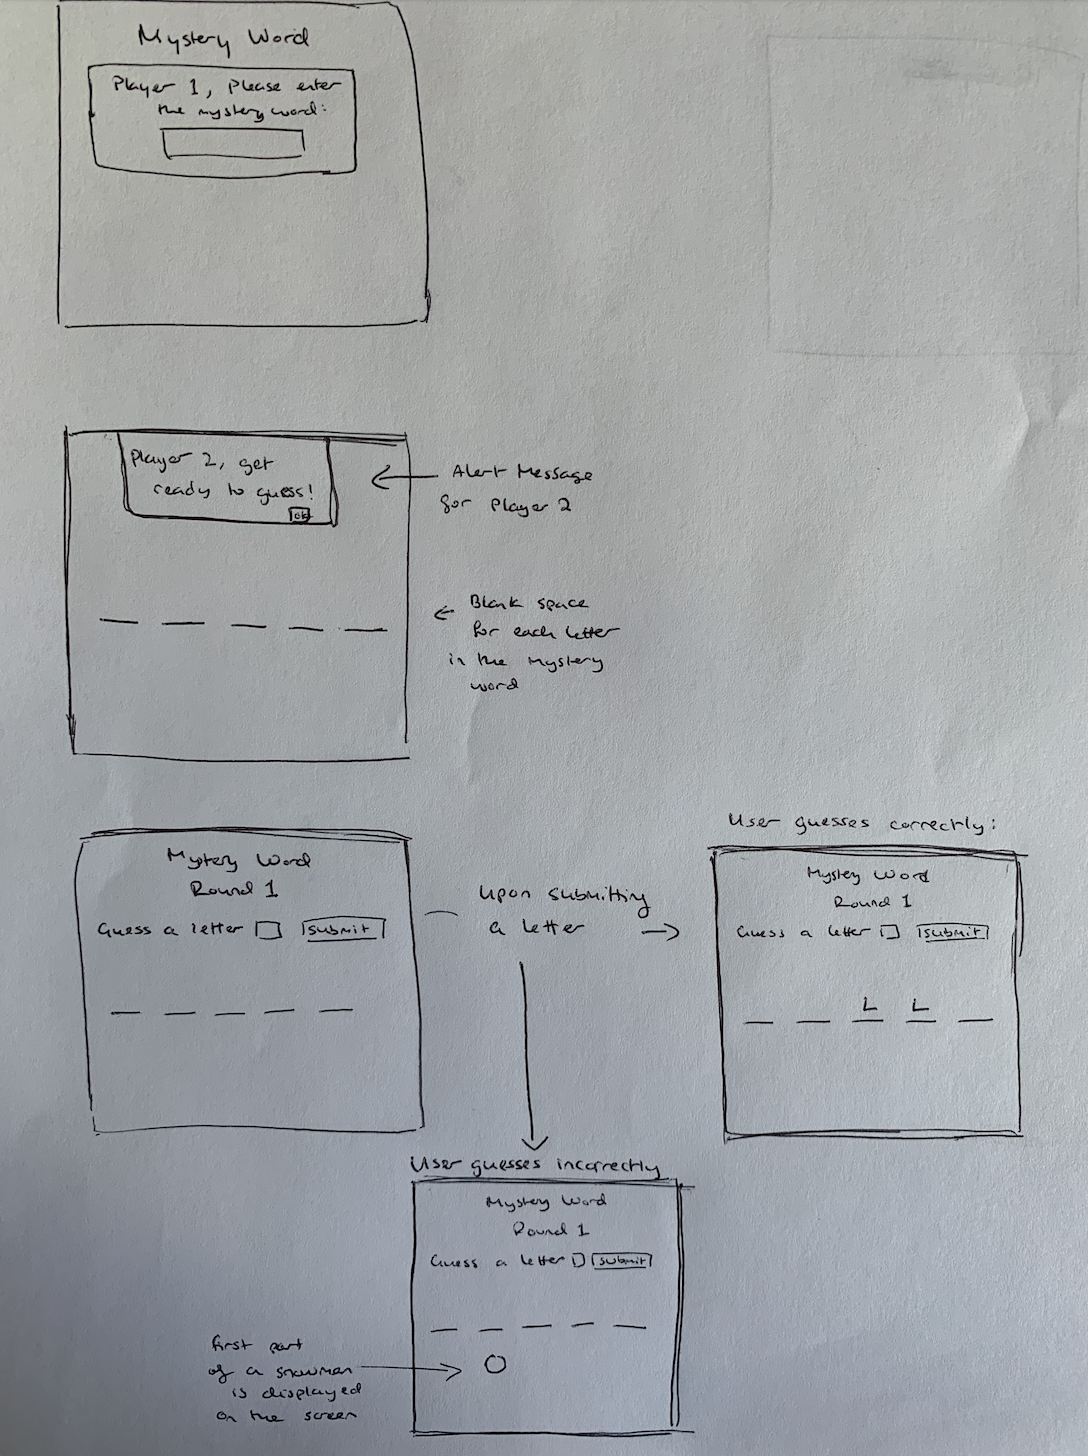 Mystery Word
Player 1, Please enter
the mystery word:
Player 2, get
ready to guess!
OK
Alert Message
for Player 2
Blank space
for each letter
in the mystery
word
Mystery Word
Round 1
Guess a letter submit
Upon submitting
a letter
User guesses correctly:
Mystery Word
Round 1
Guess a letter submit
L L
User guesses incorrectly
Mystery Word
Round 1
Guess a letter submit
first part
of a snowman
is displayed
on the screen